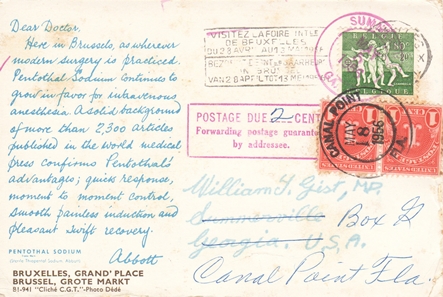 Dear Doctor,
Here in Brussels, as wherever
modern surgery is practiced.
Pentothal Sodium continues to
grow in favor for intravenous
anesthesia. A solid background
of more than 2,300 articles
published in the world medical
press confirms Pentothal's
advantages; quick response,
moment to moment control,
smooth painless induction and
pleasant swift recovery.
Abbott
PENTOTHAL SODIUM
BRUXELLES, GRAND' PLACE
BRUSSEL, GROTE MARKT
81-941 "Cliché C.G.T."-Photo Dédé
VISITEZ LA FOIRE INTLE
DE BRUXELLES
BELGIQUE
POSTAGE DUE 2 CENT
Forwarding postage guarante
by addressee.
CANAL POINT
MAY
8
1956
FLA.
1
1
William T. Gist, MD.
Summerville Box G
Georgia, U.S.A.
Canal Point Fla.